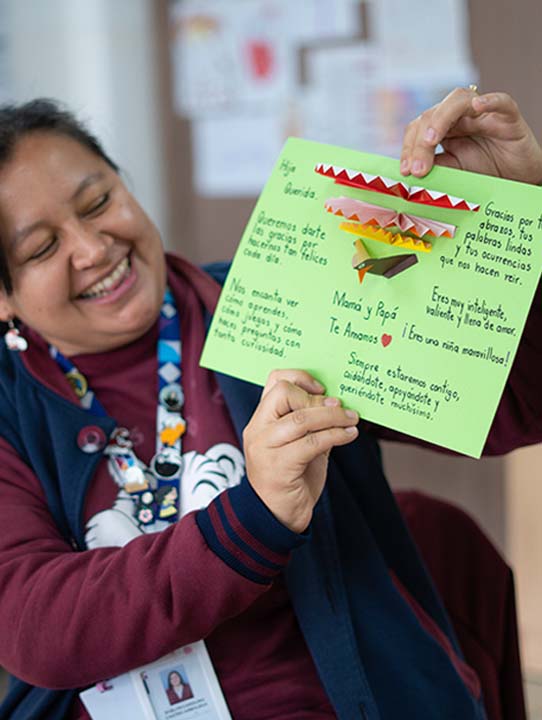 Hija
Querida.
Queremos darte
las gracias por
hacernos tan felices
cada día.
Nos encanta ver
cómo aprendes,
cómo juegas y cómo
haces preguntas con
tanta curiosidad.
Mamá y Papá
Te Amamos
Siempre estaremos contigo,
cuidándote, apoyándote y
queriéndote muchísimo.
Gracias por t
abrazos, tus
palabras lindas
y tus ocurrencias
que nos hacen reír.
Eres muy inteligente,
valiente y llena de amor.
¡Eres una niña maravillosa!